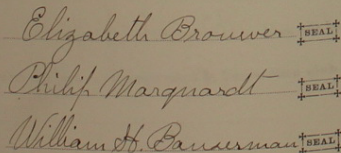 Elizabeth Brouwer SEAL
Philip Marquardt SEAL
William H. Bauserman SEAL